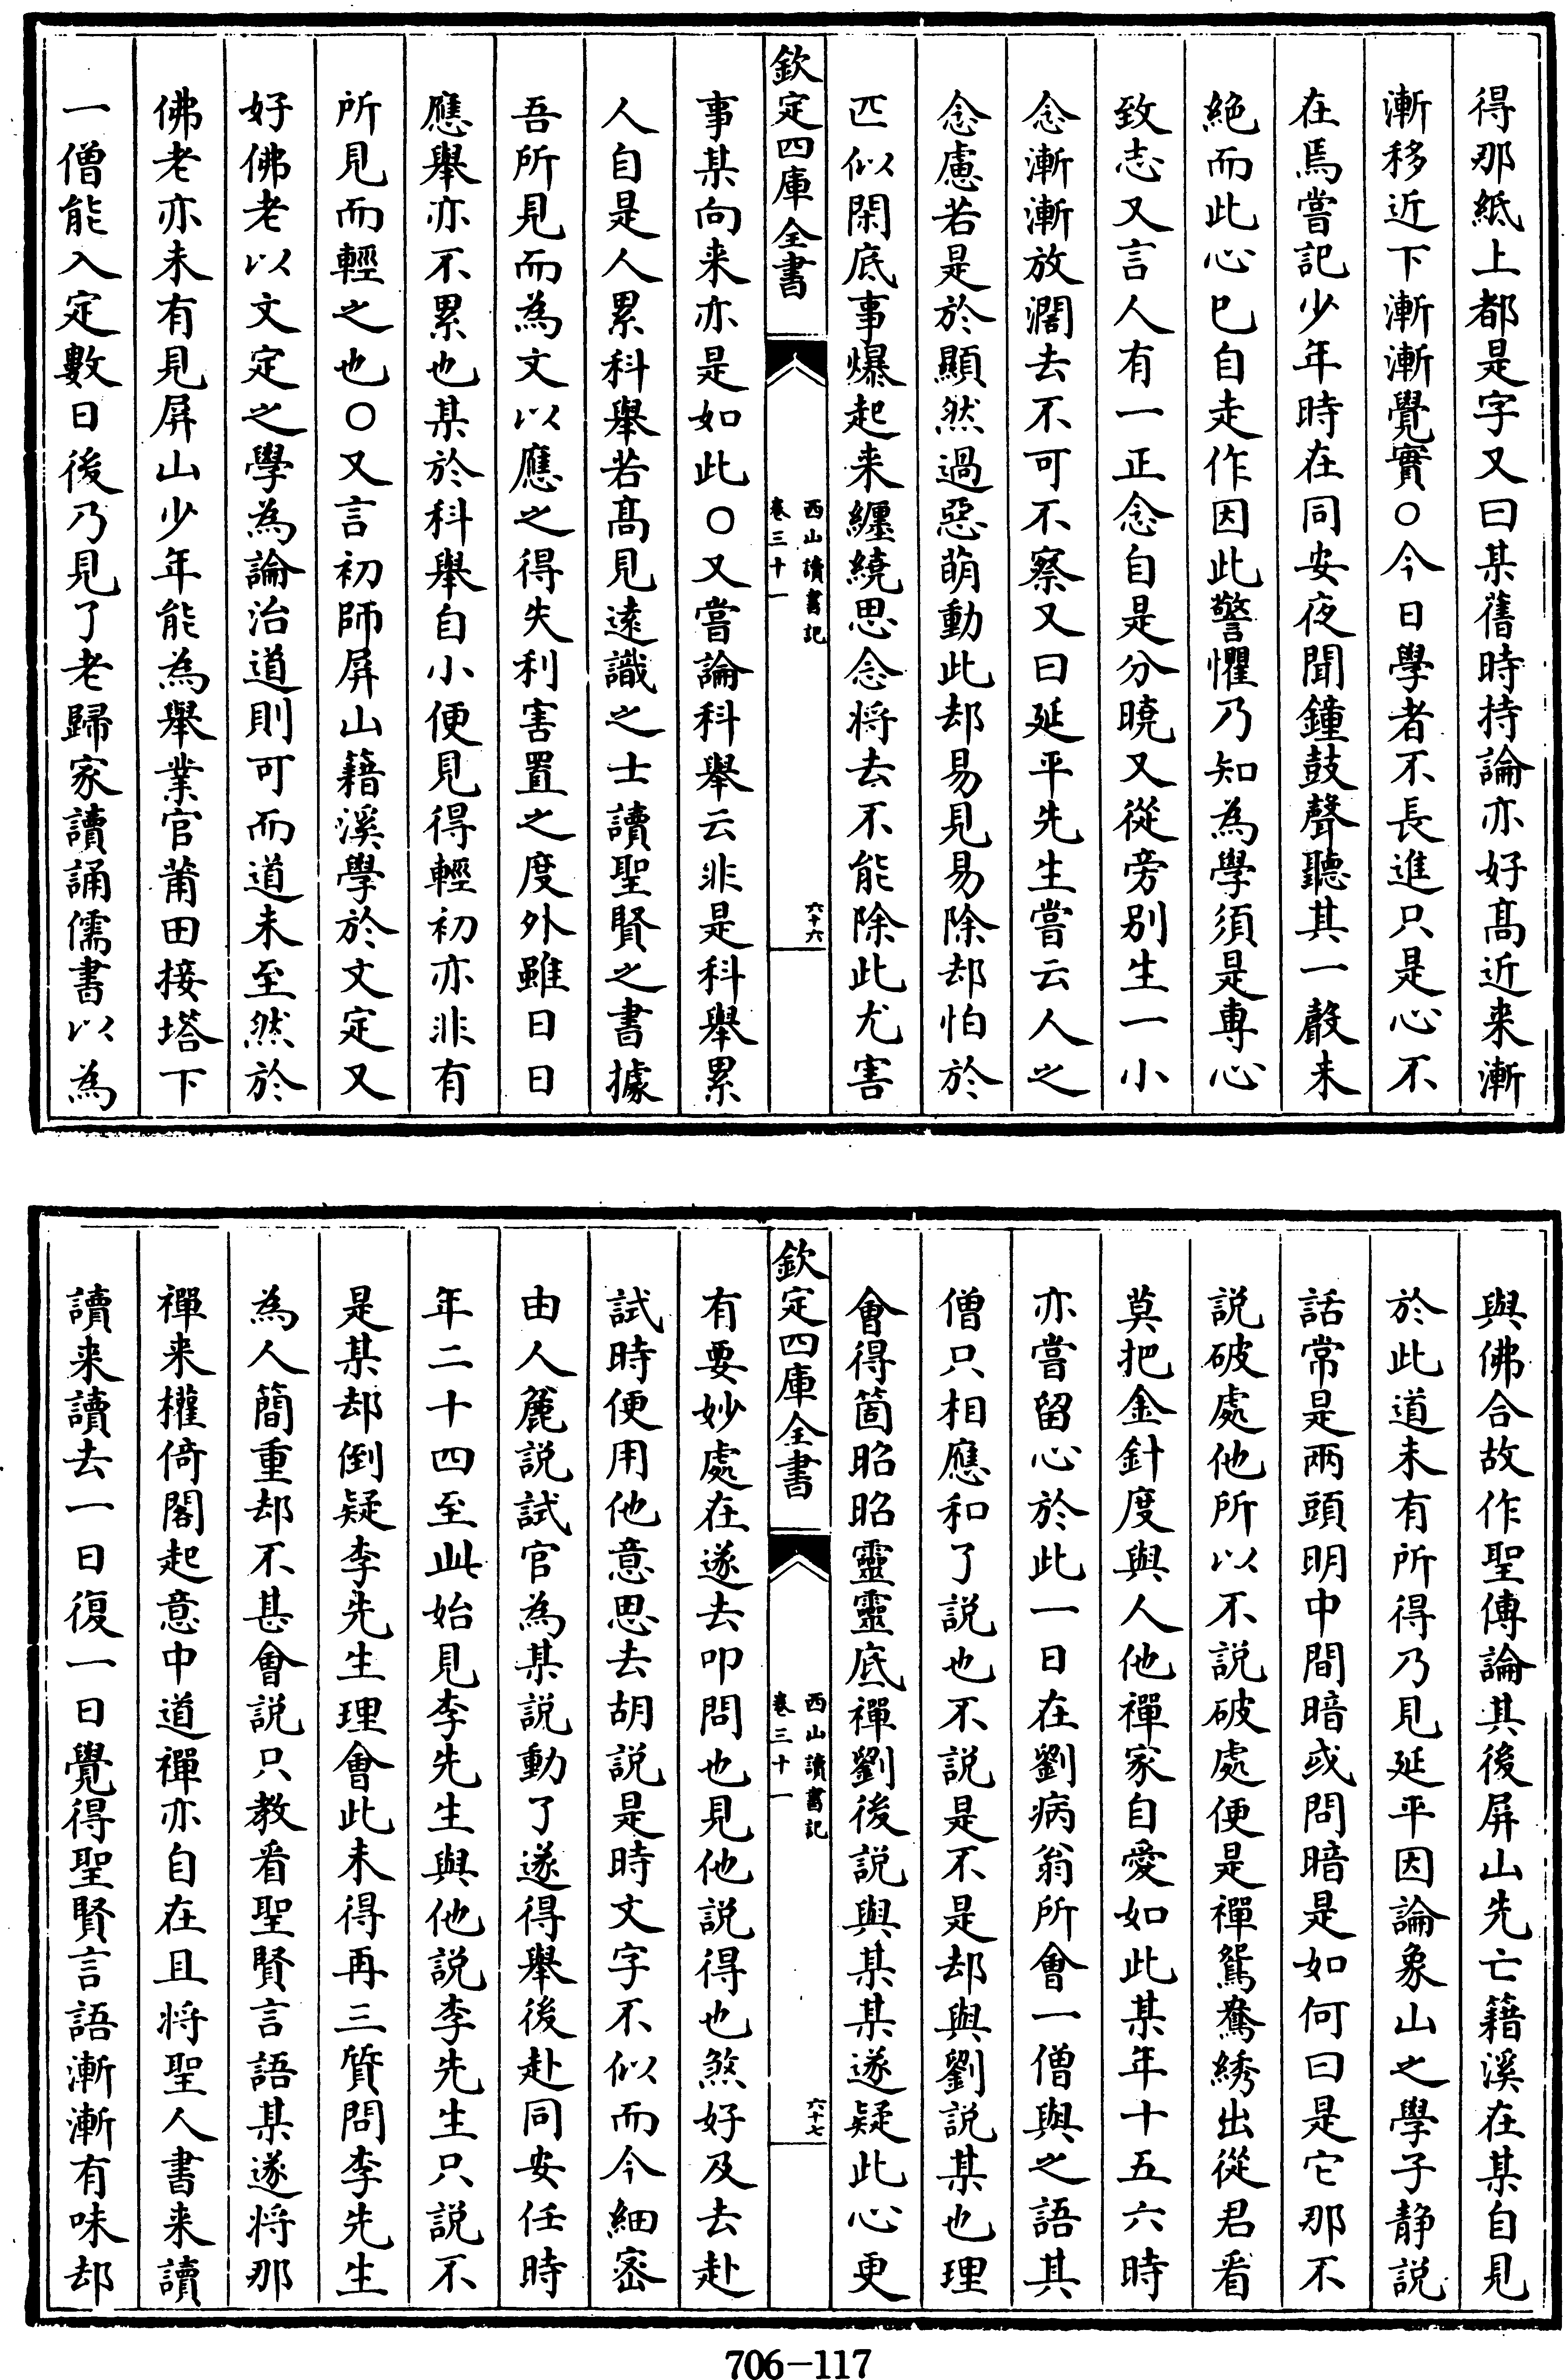 得那紙上都是字又曰某舊時持論亦好髙近来漸
漸移近下漸漸覺實○今日學者不長進只是心不
在焉嘗記少年時在同安夜聞鐘鼓聲聽其一聲未
絶而此心已自走作因此警懼乃知為學須是專心
致志又言人有一正念自是分曉又從旁別生一小
念漸漸放濶去不可不察又曰延平先生嘗云人之
念慮若是於顯然過惡萌動此却易見易除却怕於
匹似閑底事爆起来纏繞思念将去不能除此尤害
欽定四庫全書
西山讀書記
卷三十一
六十六
事某向来亦是如此○又嘗論科舉云非是科舉累
人自是人累科舉若髙見逺識之士讀聖賢之書據
吾所見而為文以應之得失利害置之度外雖日日
應舉亦不累也某於科舉自小便見得輕初亦非有
所見而輕之也○又言初師屏山籍溪學於文定又
好佛老以文定之學為論治道則可而道未至然於
佛老亦未有見屏山少年能為舉業官莆田接塔下
一僧能入定數日後乃見了老歸家讀誦儒書以為
與佛合故作聖傳論其後屏山先亡籍溪在某自見
於此道未有所得乃見延平因論象山之學子静説
話常是兩頭明中間暗或問暗是如何曰是它那不
説破處他所以不説破處便是禪鴛鴦綉出從君看
莫把金針度與人他禪家自愛如此某年十五六時
亦嘗留心於此一日在劉病翁所會一僧與之語其
僧只相應和了説也不説是不是却與劉説某也理
會得箇昭昭靈靈底禪劉後説與某某遂疑此心更
欽定四庫全書
西山讀書記
卷三十一
六十七
有要妙處在遂去叩問也見他説得也煞好及去赴
試時便用他意思去胡説是時文字不似而今細宻
由人麄説試官為某説動了遂得舉後赴同安任時
年二十四至此始見李先生與他説李先生只説不
是某却倒疑李先生理會此未得再三質問李先生
為人簡重却不甚會説只教看聖賢言語某遂将那
禪来權倚閣起意中道禪亦自在且将聖人書来讀
讀来讀去一日復一日覺得聖賢言語漸漸有味却
706-117